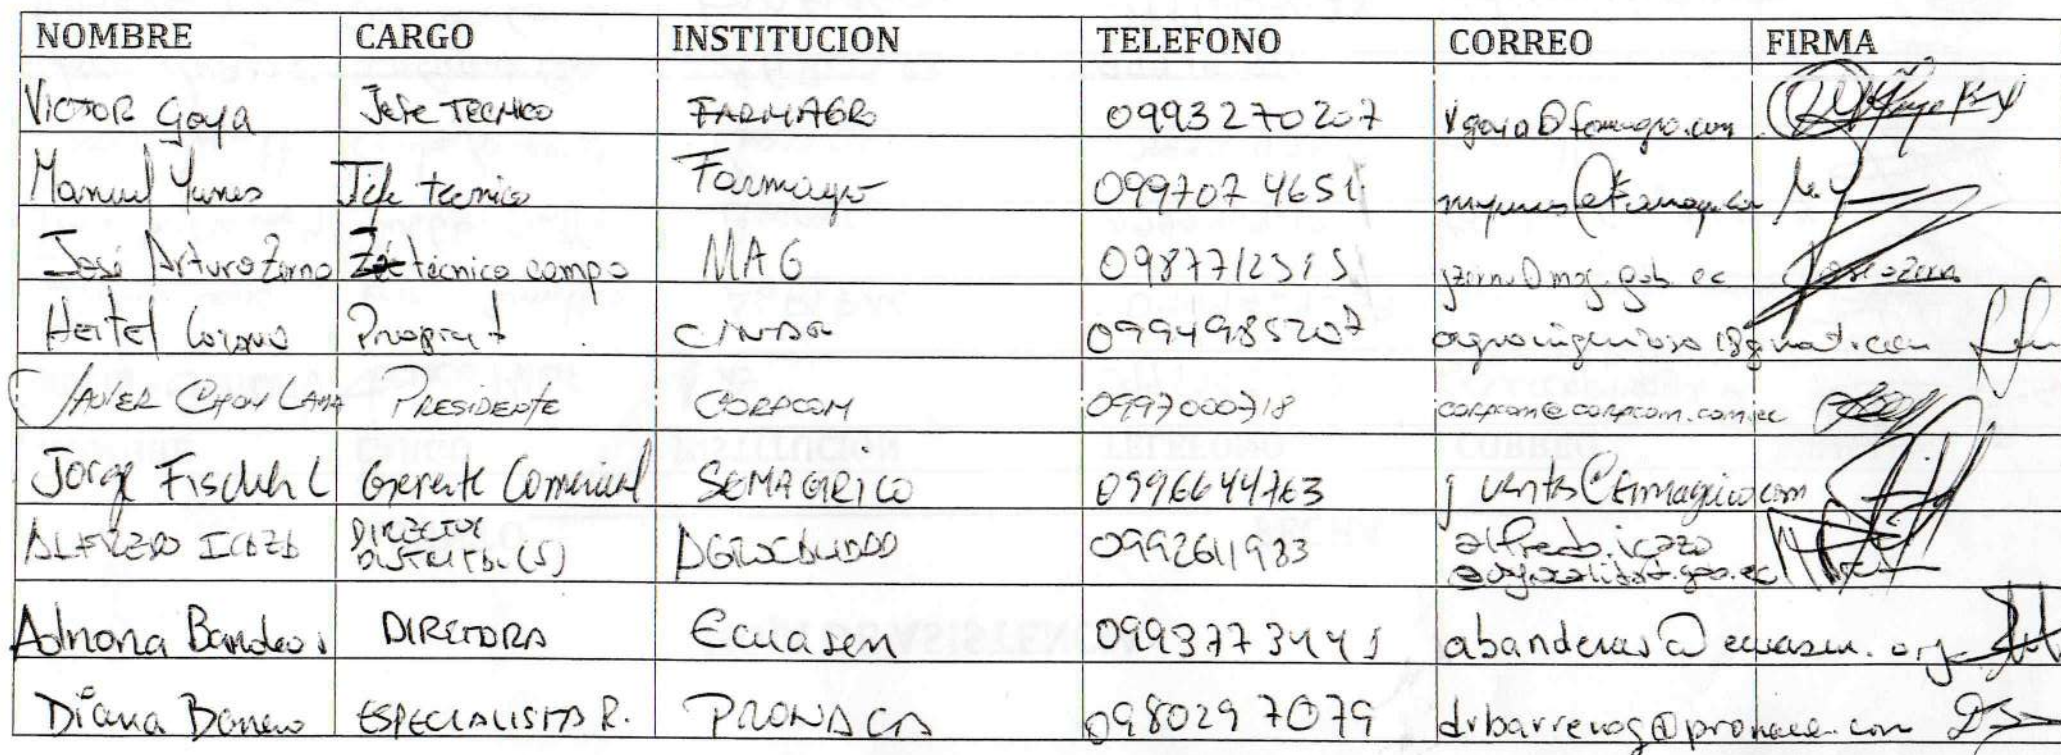 NOMBRE CARGO INSTITUCION TELEFONO CORREO FIRMA
VICTOR Goya Jefe TECNICO FARMAGRO 0993270207 vgoya@farmagro.com
Manuel Yunes Jefe tecnico Farmagro 0997074651
José Arturo Zerna técnico campo MAG 0987712515 jzerna@mag.gob.ec
Heitel Lozano 0994985207
JAVIER CHON LAMA PRESIDENTE CORPCOM 0997000718 corpcom@corpcom.com.ec
Jorge Fischer L Gerente Comercial SEMAGRICO 0996644763
ALFREDO ICAZA DIRECTOR DISTRITAL (S) AGROCALIDAD 0992611983 alfredo.icaza
@agrocalidad.gob.ec
Adriana Banderas DIRECTORA Ecuasem 0993773441 abanderas@ecuasem.org
Diana Barreno ESPECIALISTA R. PRONACA 0980297079 drbarrenog@pronaca.com